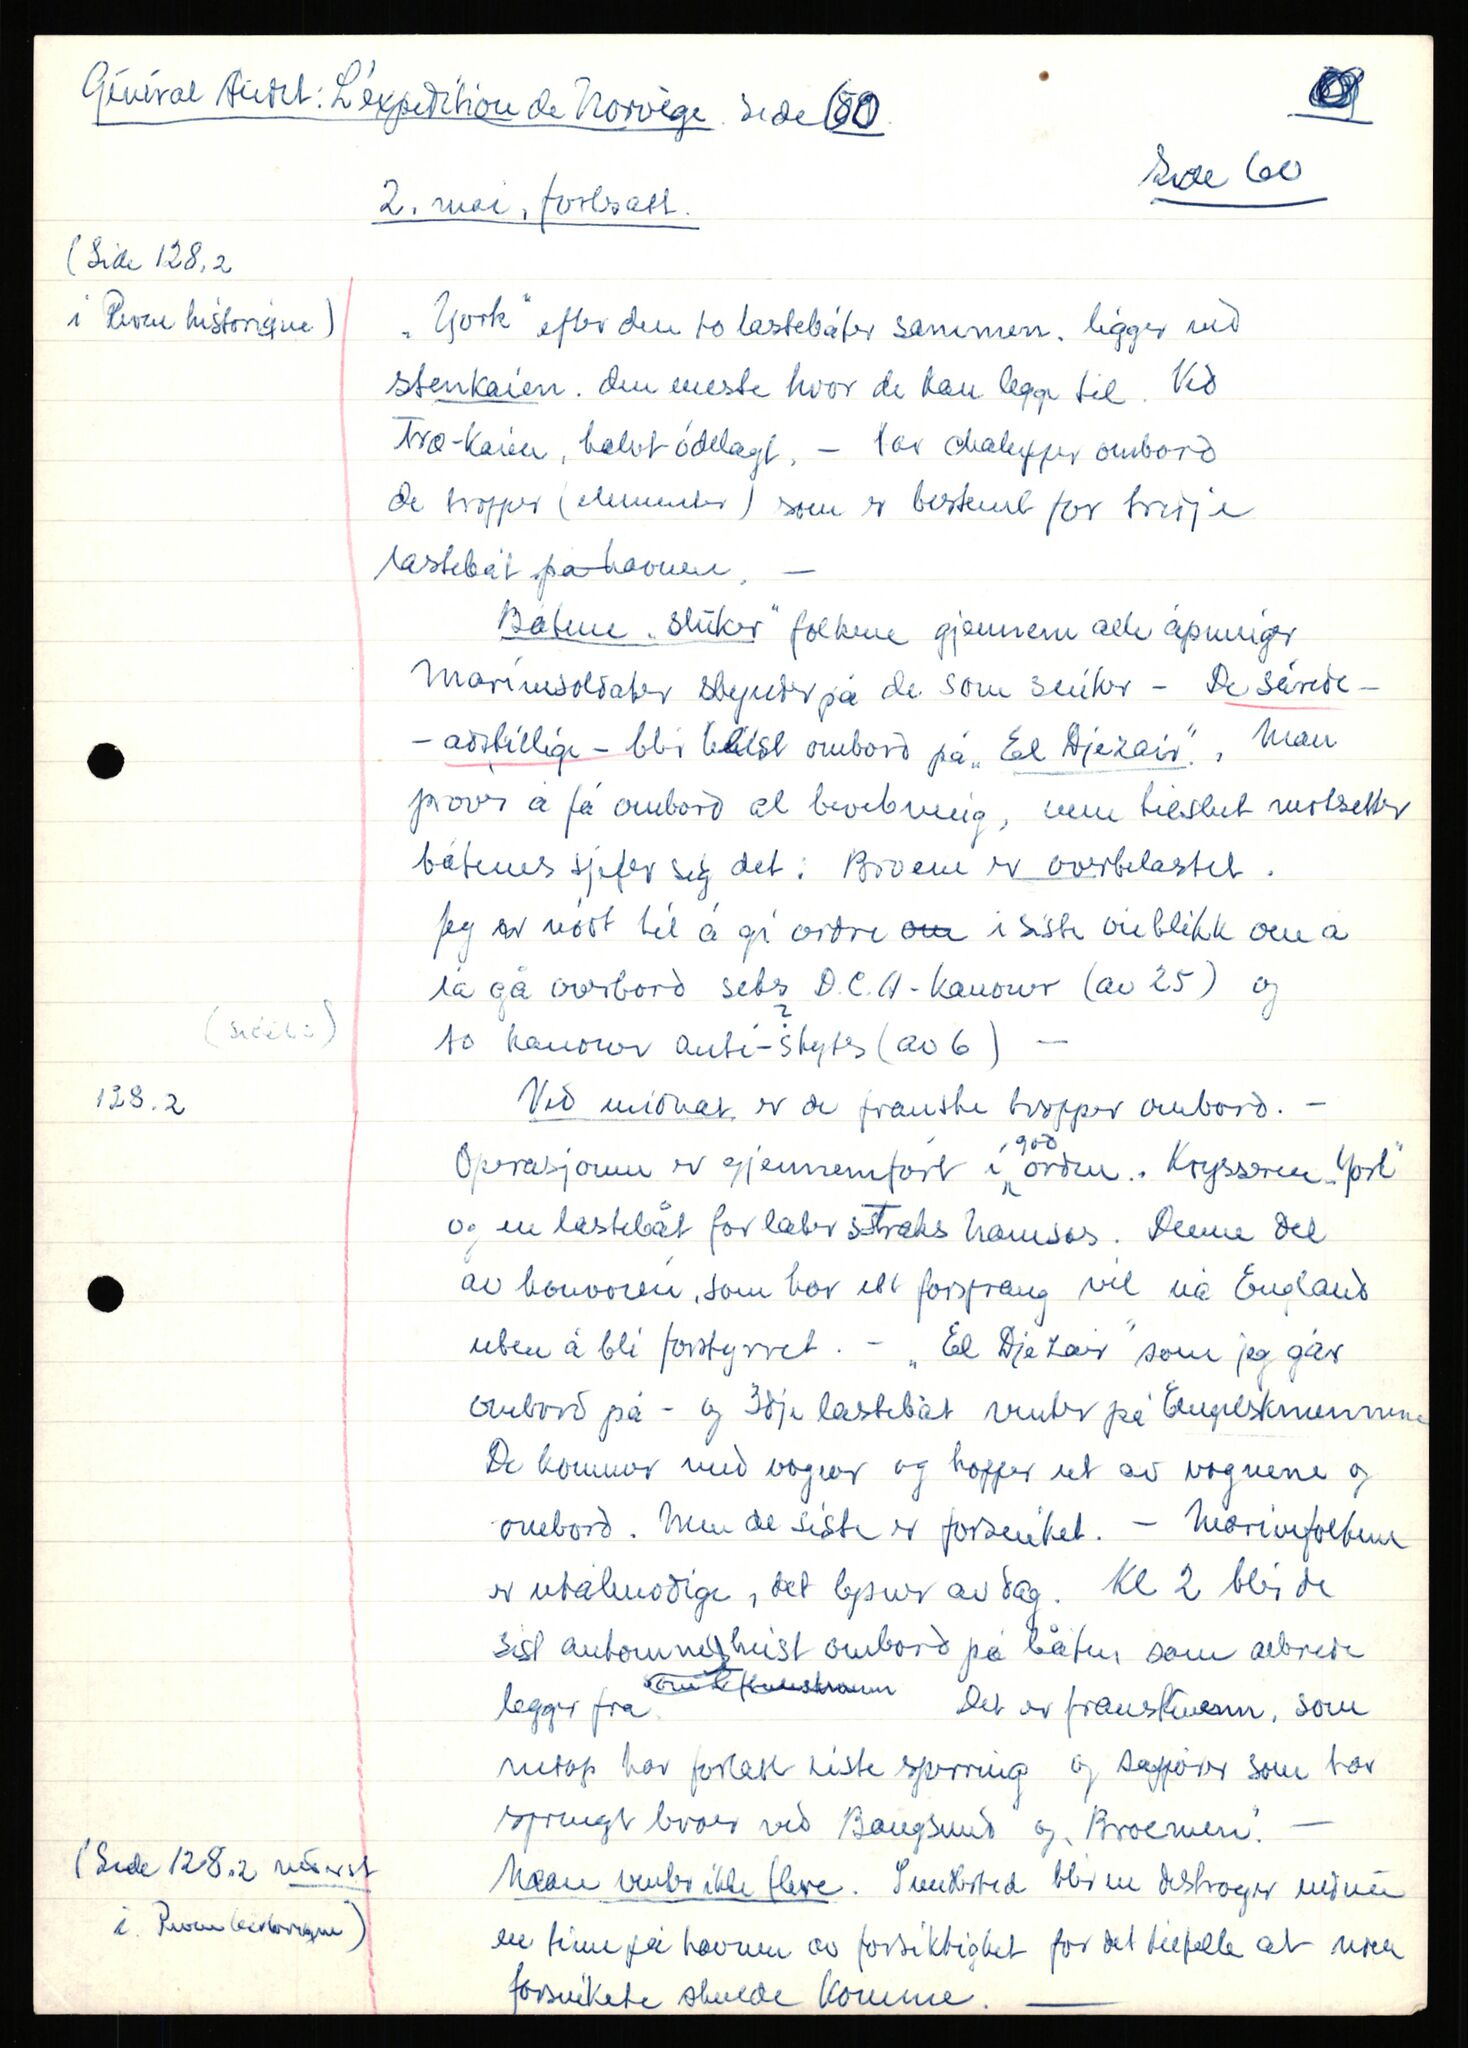 Général Audet: L'expedition de Norvège. Side 60.
Side 60
2. mai, fortsatt.
(Side 128,2
i Revue historique)
"York" efter den to lastebåter sammen. ligger ved
stenkaien. den eneste hvor de kan legge til. Ved
Træ-kaien, halvt ödelagt, – tar chalupper ombord
de tropper (elementer) som er bestemt for tredje
lastebåt på havnen. –
Båtene "sluker" folkene gjennem alle åpninger
Marinesoldater skynder på de som senker – De sårede –
– adskillige – blir heist ombord på "El Djezair". Man
prøver å få ombord al bevebning, men tilslut motsetter
båtenes sjefer sig det: Broene er overbelastet.
Jeg er nödt til å gi ordre om i siste öieblikk om å
la gå overbord seks D.C.A-kanoner (av 25) og
to kanoner anti-skyts (av 6) –
?
(side 60)
128.2
Ved midnat er de franske tropper ombord. –
Operasjonen er gjennemfört i god orden. Krysseren "York"
og en lastebåt forlater straks Namsos. Denne del
av konvoien, som har ett forsprang vil nå England
uten å bli forstyrret. – "El Djezair" som jeg går
ombord på – og 3dje lastebåt venter på Engelskmennene
De kommer med vogner og hopper ut av vognene og
ombord. Men de siste er forsenket. – Marinefolkene
er utålmodige, det lysner av dag. Kl 2 blir de
sist ankomne heist ombord på båten som allerede
legger fra. Det er franskmenn, som
netop har forlatt siste sperring og sapører som har
sprengt broer ved Bangsund og "Broemen". –
(Side 128.2 nederst
i Revue historique)
Man venter ikke flere. Imidlertid blir en destroyer ennu
en time på havnen av forsiktighet for det tilfelle at noen
forsenkete skulde komme. –